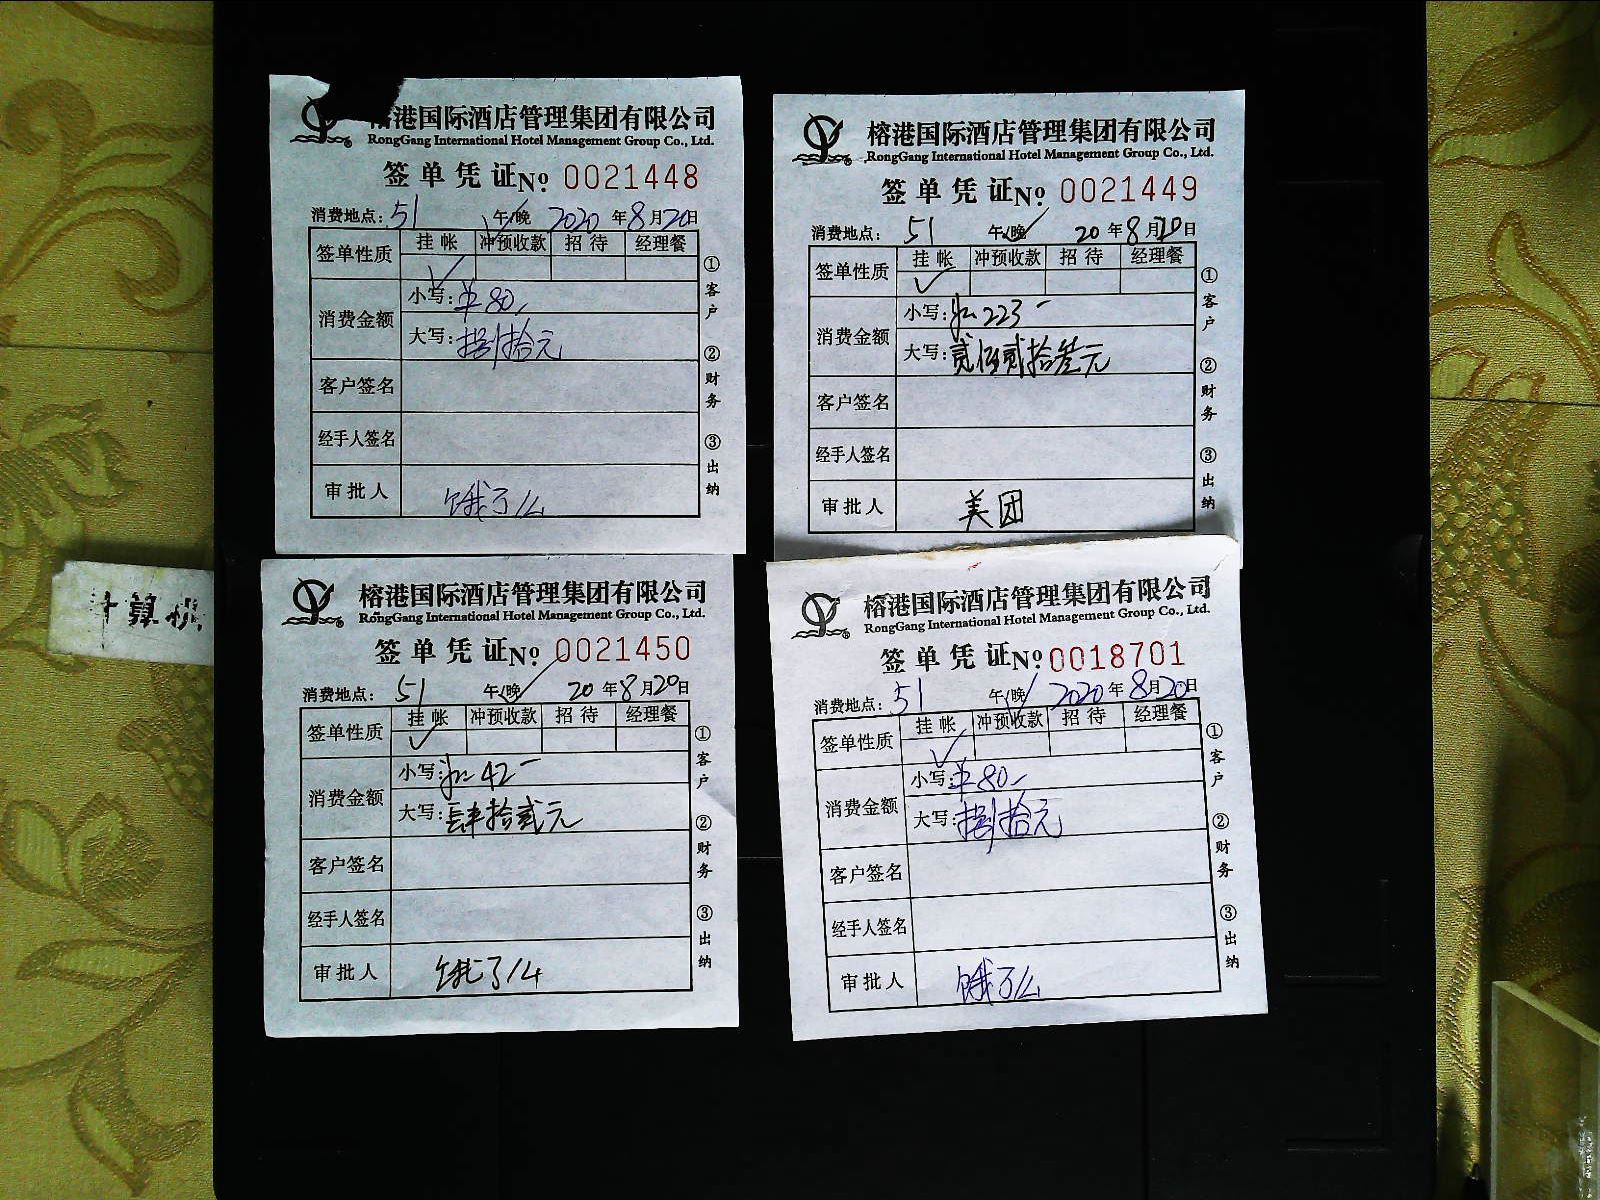 榕港国际酒店管理集团有限公司
RongGang International Hotel Management Group Co., Ltd.
签单凭证No. 0021448
消费地点: 51 午/晚 2020年8月20日
签单性质 挂帐 冲预收款 招待 经理餐
✓
消费金额
小写: 单80.
大写: 捌拾元
客户签名
经手人签名
审批人 饿了么
①客户 ②财务 ③出纳
榕港国际酒店管理集团有限公司
RongGang International Hotel Management Group Co., Ltd.
签单凭证No. 0021449
消费地点: 51 午/晚 20年8月20日
签单性质 挂帐 冲预收款 招待 经理餐
✓
消费金额
小写: 223-
大写: 贰佰贰拾叁元
客户签名
经手人签名
审批人 美团
①客户 ②财务 ③出纳
计算机
榕港国际酒店管理集团有限公司
RongGang International Hotel Management Group Co., Ltd.
签单凭证No. 0021450
消费地点: 51 午/晚 20年8月20日
签单性质 挂帐 冲预收款 招待 经理餐
✓
消费金额
小写: 42-
大写: 肆拾贰元
客户签名
经手人签名
审批人 饿了么
①客户 ②财务 ③出纳
榕港国际酒店管理集团有限公司
RongGang International Hotel Management Group Co., Ltd.
签单凭证No. 0018701
消费地点: 51 午/晚 2020年8月20日
签单性质 挂帐 冲预收款 招待 经理餐
✓
消费金额
小写: 单80-
大写: 捌拾元
客户签名
经手人签名
审批人 饿了么
①客户 ②财务 ③出纳